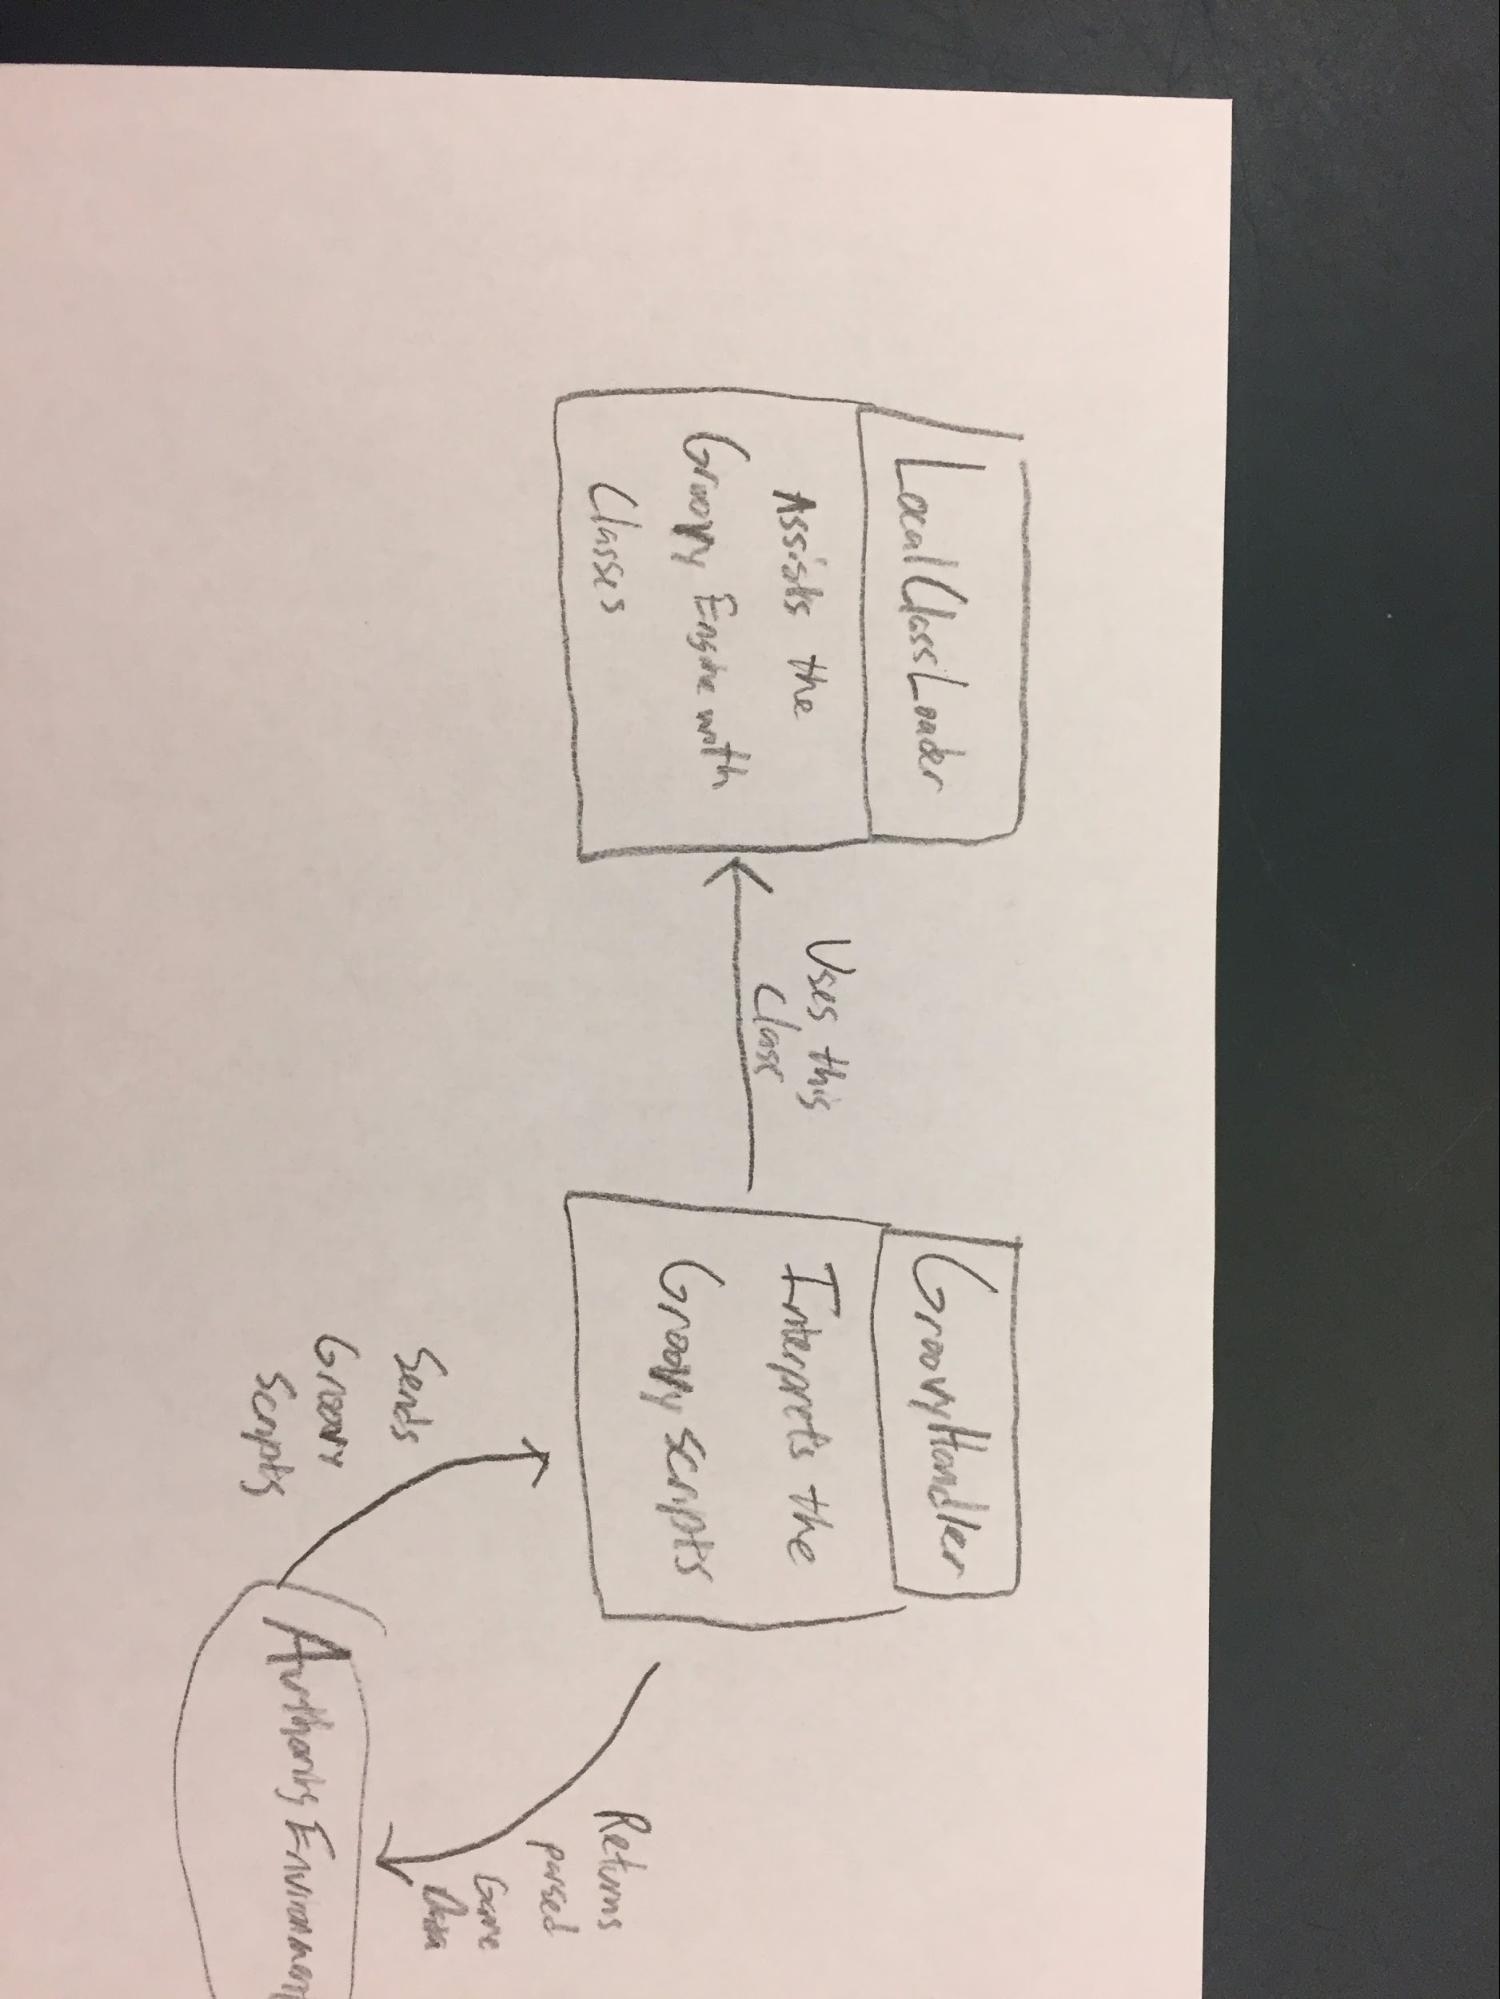 LocalClassLoader
Assists the
Groovy Engine with
Classes
Uses this
Class
GroovyHandler
Interprets the
Groovy Scripts
Sends
Groovy
Scripts
Returns
parsed
Game
Data
Authoring Environment